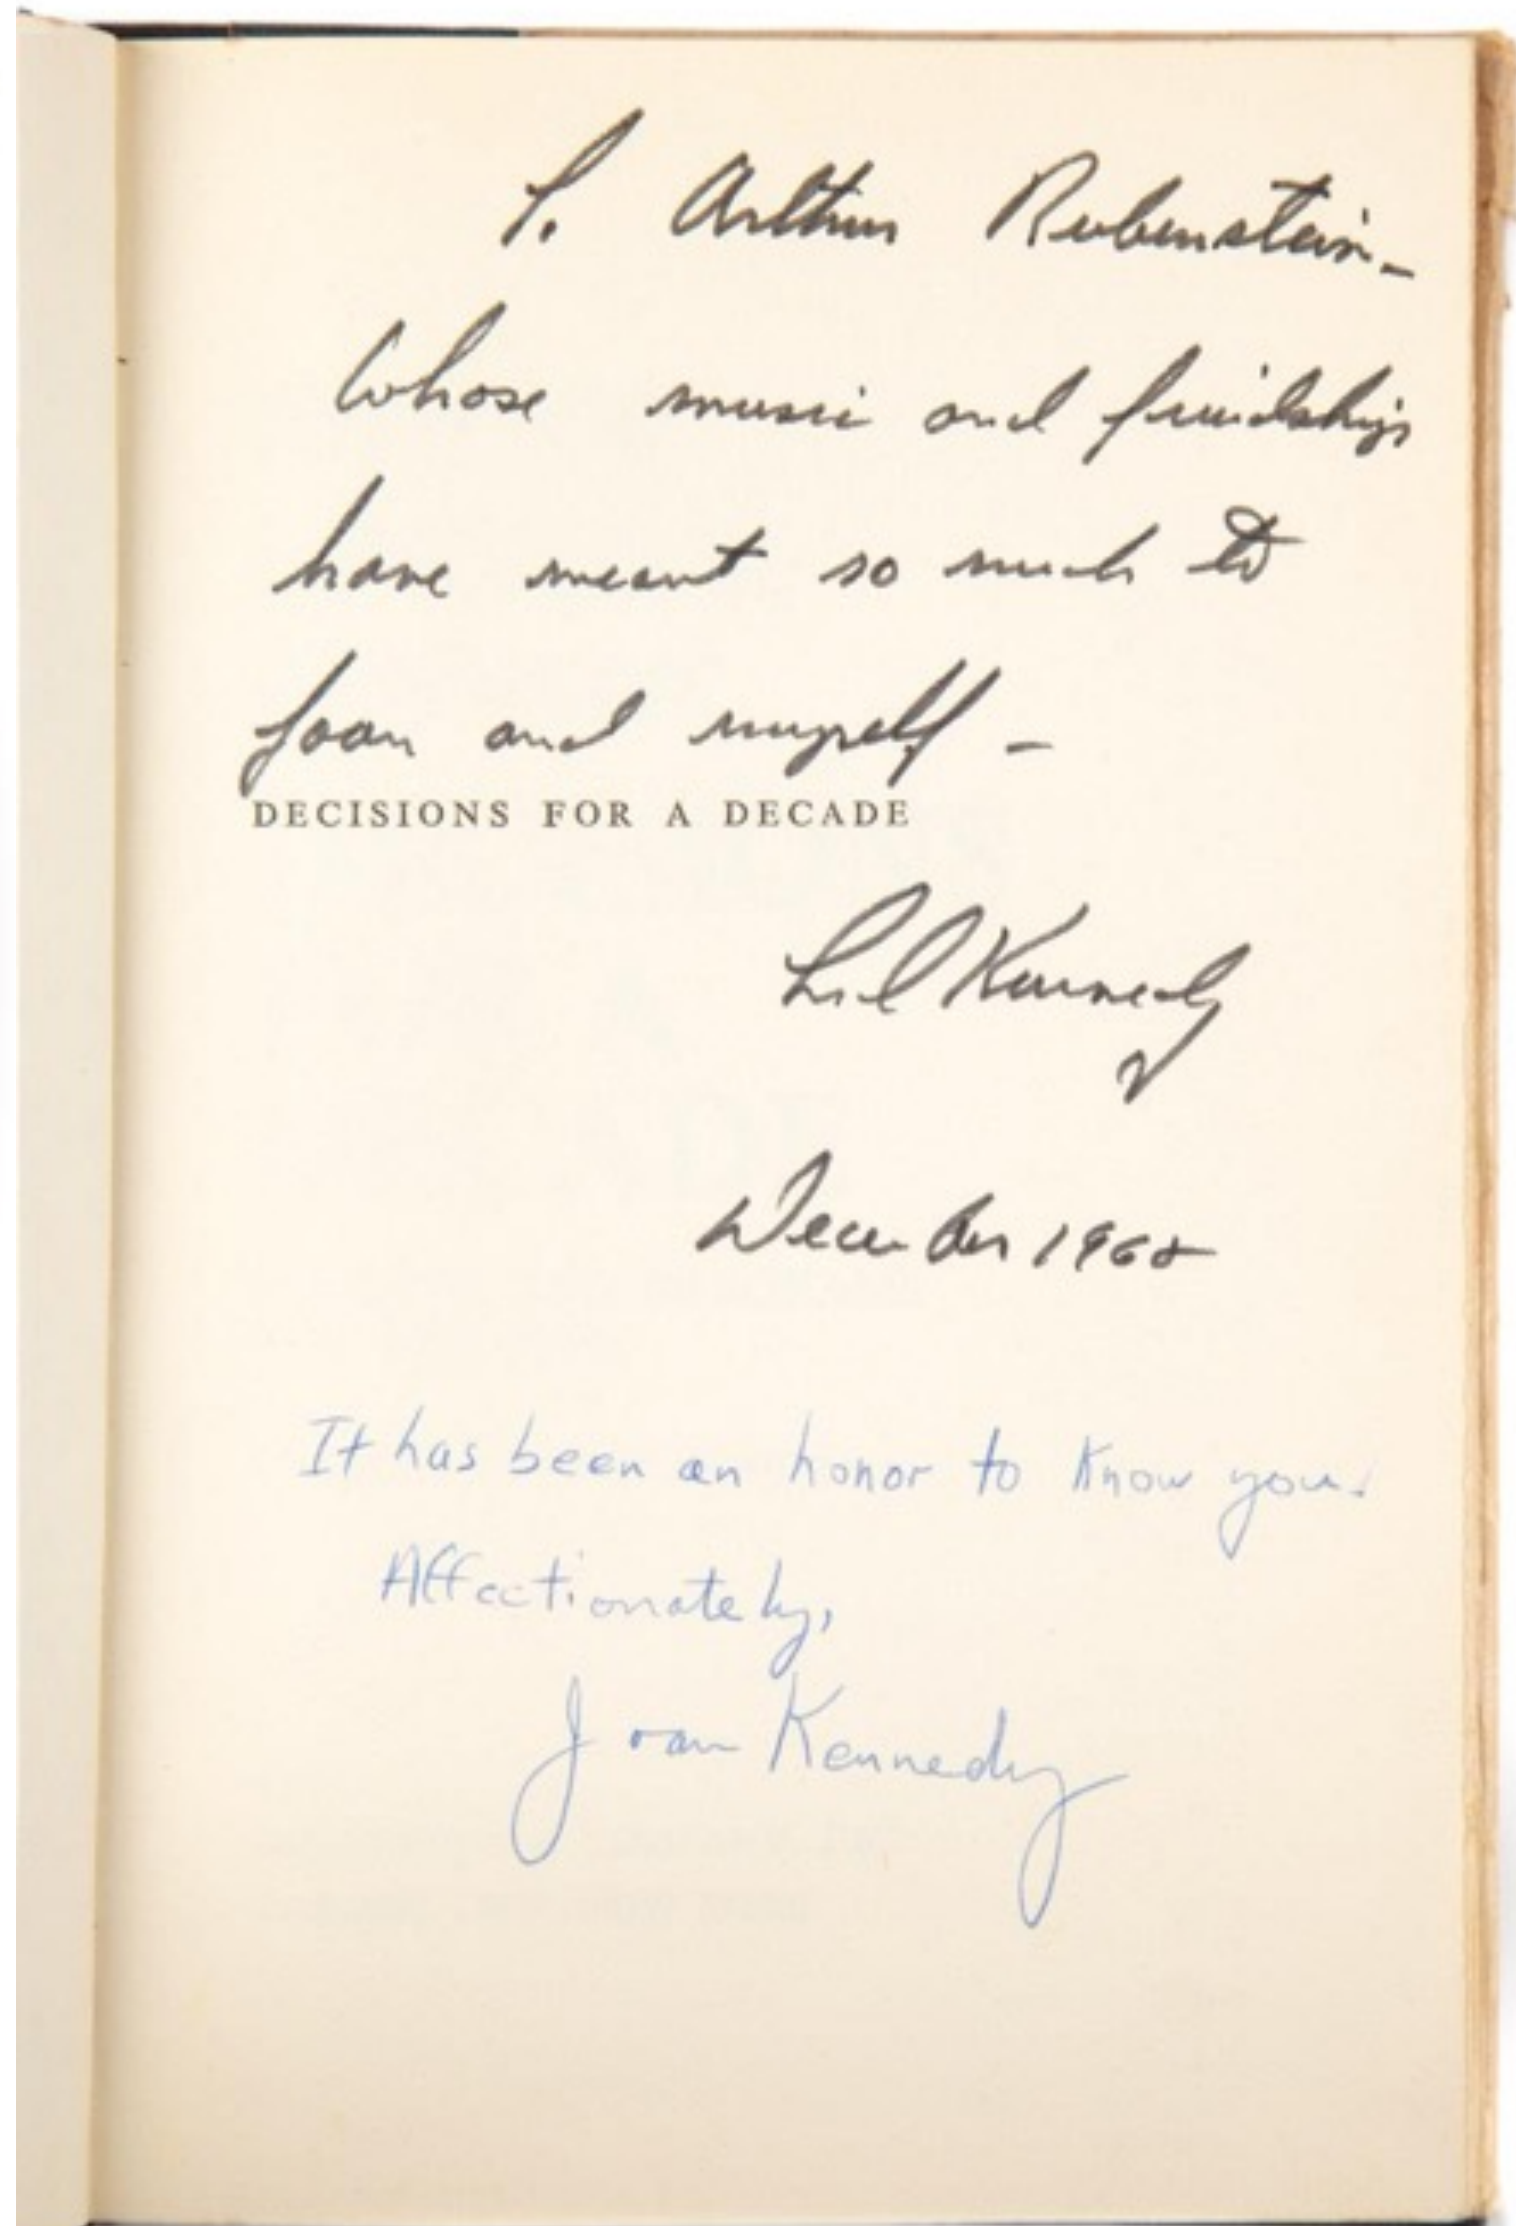 To Arthur Rubenstein -
Whose music and friendship
have meant so much to
Joan and myself -
DECISIONS FOR A DECADE
Ted Kennedy
December 1968
It has been an honor to know you.
Affectionately,
Joan Kennedy